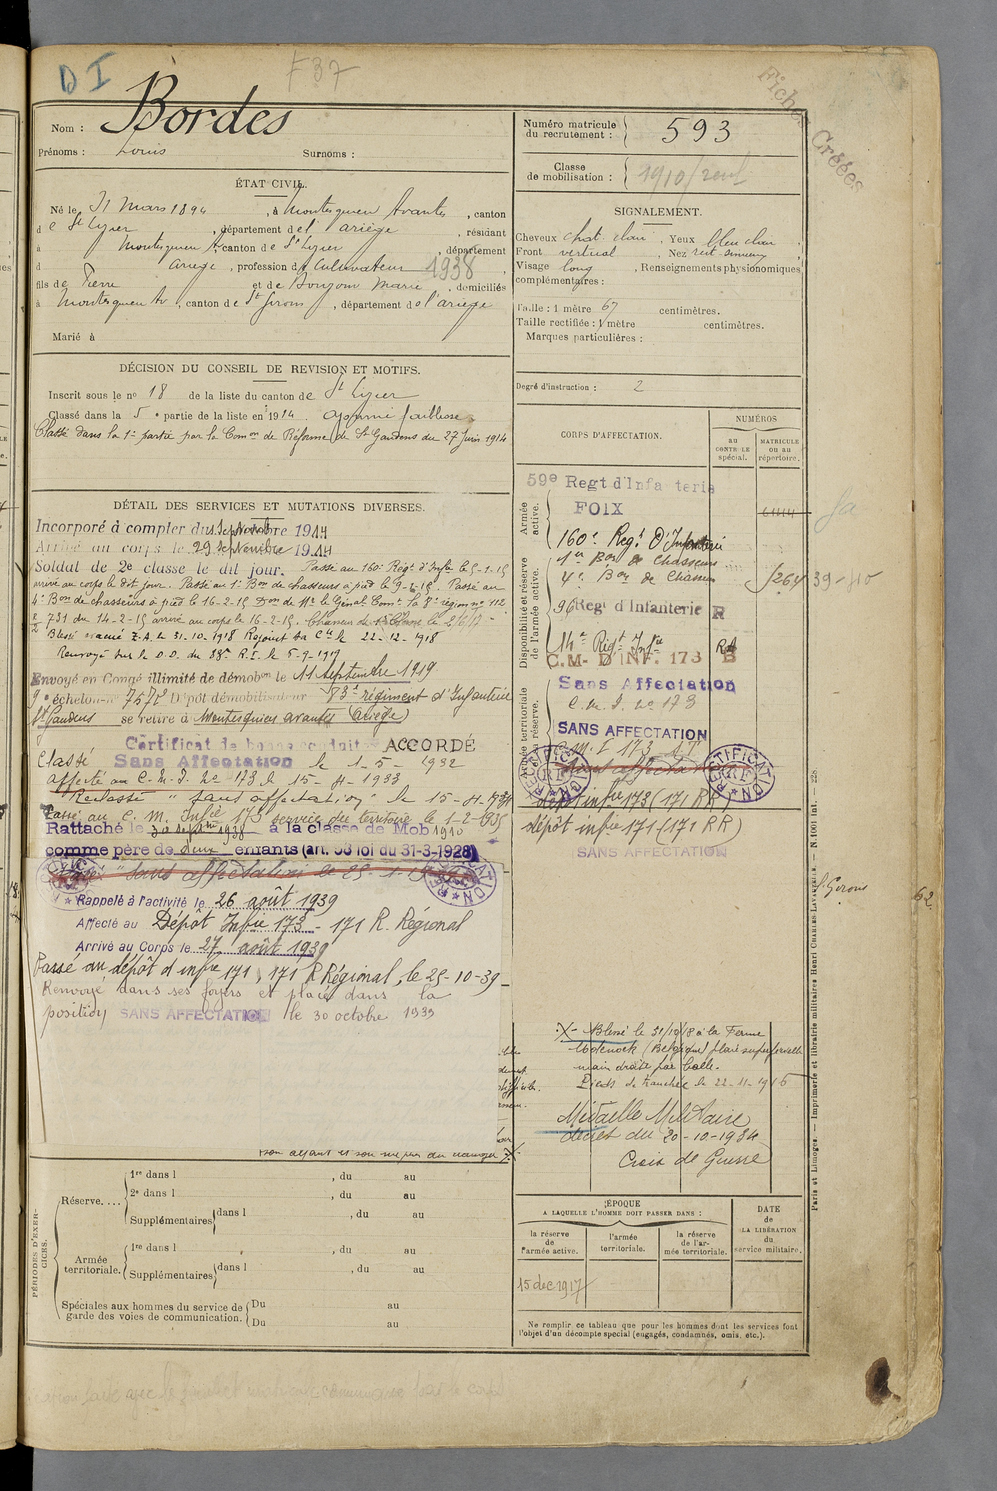 DI
F 37
Fiches Créées
Nom : Bordes
Prénoms : Louis Surnoms :
Numéro matricule du recrutement : 593
Classe de mobilisation : 1910
ÉTAT CIVIL.
Né le 31 mars 1894, à Montesquieu Avantès, canton
de St Lizier, département de l'ariège, résidant
à Montesquieu A. canton de St Lizier, département
d Ariège, profession de cultivateur 1938
fils de Pierre et de Marie, domiciliés
à Montesquieu Av, canton de St Girons, département de l'ariège
Marié à
SIGNALEMENT.
Cheveux chat. clair, Yeux bleu clair,
Front vertical, Nez rect. sinueux,
Visage long, Renseignements physionomiques
complémentaires :
Taille : 1 mètre 67 centimètres.
Taille rectifiée : 1 mètre centimètres.
Marques particulières :
Degré d'instruction : 2
DÉCISION DU CONSEIL DE REVISION ET MOTIFS.
Inscrit sous le no 18 de la liste du canton de St Lizier
Classé dans la 5e partie de la liste en 1914 ajourné faiblesse
Classé dans la 1e partie par la Comon de Réforme de St Gaudens du 27 Juin 1914
DÉTAIL DES SERVICES ET MUTATIONS DIVERSES.
Incorporé à compter du Septembre 1914
Arrivé au corps le 29 Septembre 1914
Soldat de 2e classe le dit jour. Passé au 160e Régt d'Infie le 5-1-15
arrivé au corps le dit jour. Passé au 1r Bon de chasseurs à pied le 9-2-15. Passé au
4e Bon de chasseurs à pied le 16-2-15 Don de Mr le Génal Comt la 8e région no 112
731 du 14-2-15 arrivé au corps le 16-2-15. Chasseur de 1e Classe le
Blessé évacué Z.A. le 31-10-1918 Rejoint sa Cie le 22-12-1918
Renvoyé sur le D.D. du 88e R.I. le 5-9-1919
Envoyé en Congé illimité de démobon le 11 Septembre 1919
9e échelon no 7572 Dépôt démobilisateur 83e régiment d'Infanterie
St Gaudens se retire à Montesquieu avantès (ariège)
Certificat de bonne conduite ACCORDÉ
Classé Sans Affectation le 1-5-1932
affecté au C.M.I. no 173 le 15-4-1933
Reclassé "sans affectation" le 15-4-1934
Passé au C.M. Infie 173 service du territoire le 1-2-1935
Rattaché le 1938 à la classe de Mob 1910
comme père de deux enfants (art. 58 loi du 31-3-1928)
Classé "sans affectation" le 25-1-19
RECTIFICATION
Rappelé à l'activité le 26 août 1939
Affecté au Dépôt Infie 173 - 171 R. Régional
Arrivé au Corps le 27 août 1939
Passé au dépôt d'infie 171, 171 R Régional, le 25-10-39
Renvoyé dans ses foyers et placé dans la
position SANS AFFECTATION le 30 octobre 1939
CORPS D'AFFECTATION.
NUMÉROS
au CONTROLE spécial.
MATRICULE ou au répertoire.
Armée active.
59e Regt d'Infanterie
FOIX
160e Regt D'Infanterie
1er Bon de Chasseurs
4e Bon de Chasseurs
5264
39-40
Disponibilité et réserve de l'armée active.
96 Regt d'Infanterie R
14e Régt Infie
C.M. D'INF. 173 B
Sans Affectation
C.M.I. no 173
Armée territoriale et sa réserve.
SANS AFFECTATION
C.M.I 173 S.T.
Sans affectation
RECTIFICATION
dépôt infie 173 (171 RR)
dépôt infie 171 (171 RR)
SANS AFFECTATION
St Girons
62
X - Blessé le 31/10/18 à la Ferme
(Belgique) plaie superficielle
main droite par balle.
Pieds de tranchée le 22-11-1916
Médaille Militaire
décret du 20-10-1934
Croix de Guerre
PÉRIODES D'EXERCICES.
Réserve.... 1re dans l , du au
2e dans l , du au
Supplémentaires dans l , du au
Armée territoriale. 1re dans l , du au
Supplémentaires dans l , du au
Spéciales aux hommes du service de garde des voies de communication. Du au
Du au
ÉPOQUE
A LAQUELLE L'HOMME DOIT PASSER DANS :
la réserve de l'armée active.
l'armée territoriale.
la réserve de l'armée territoriale.
DATE de LA LIBÉRATION du service militaire.
15 dec 1917
Ne remplir ce tableau que pour les hommes dont les services font
l'objet d'un décompte spécial (engagés, condamnés, omis, etc.).
Paris et Limoges. — Imprimerie et librairie militaires Henri CHARLES-LAVAUZELLE. — N. 1001 int. — 228.